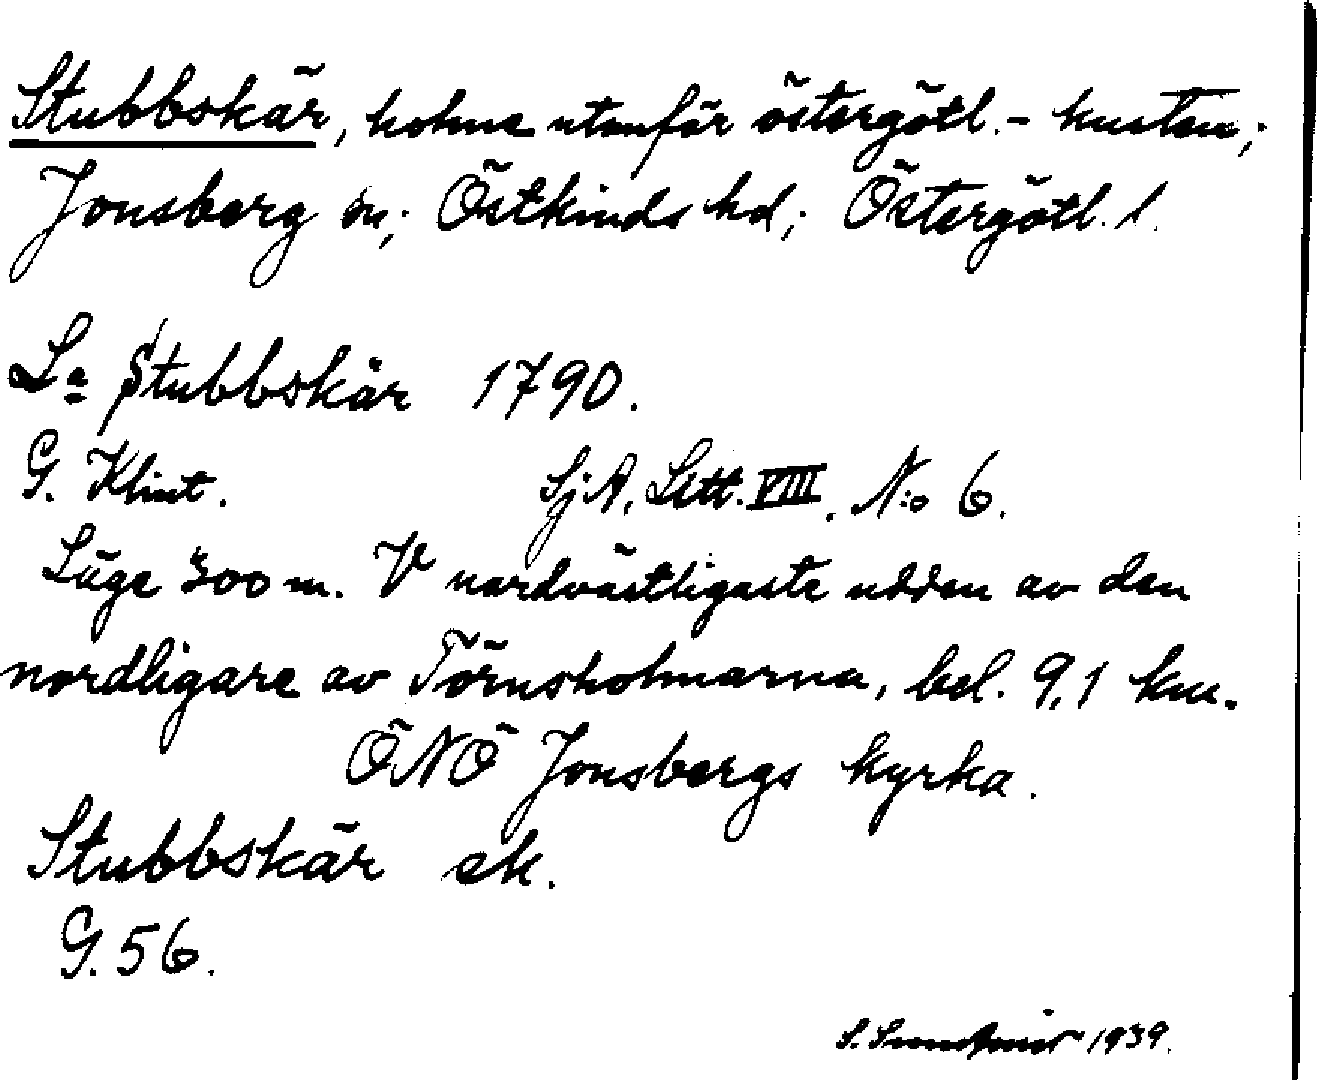 Stubbskär, holme utanför östergötl.- kusten;
Jonsberg sn; Östkinds hd; Östergötl. l.
La Stubbskär 1790.
G. Klint. Sj A, Litt. VIII. N:o 6.
Läge 300 m. V nordvästligaste udden av den
nordligare av Törnsholmarna, bel. 9,1 km.
ÖNÖ Jonsbergs kyrka.
Stubbskär ek.
G. 56.
S. 1939.